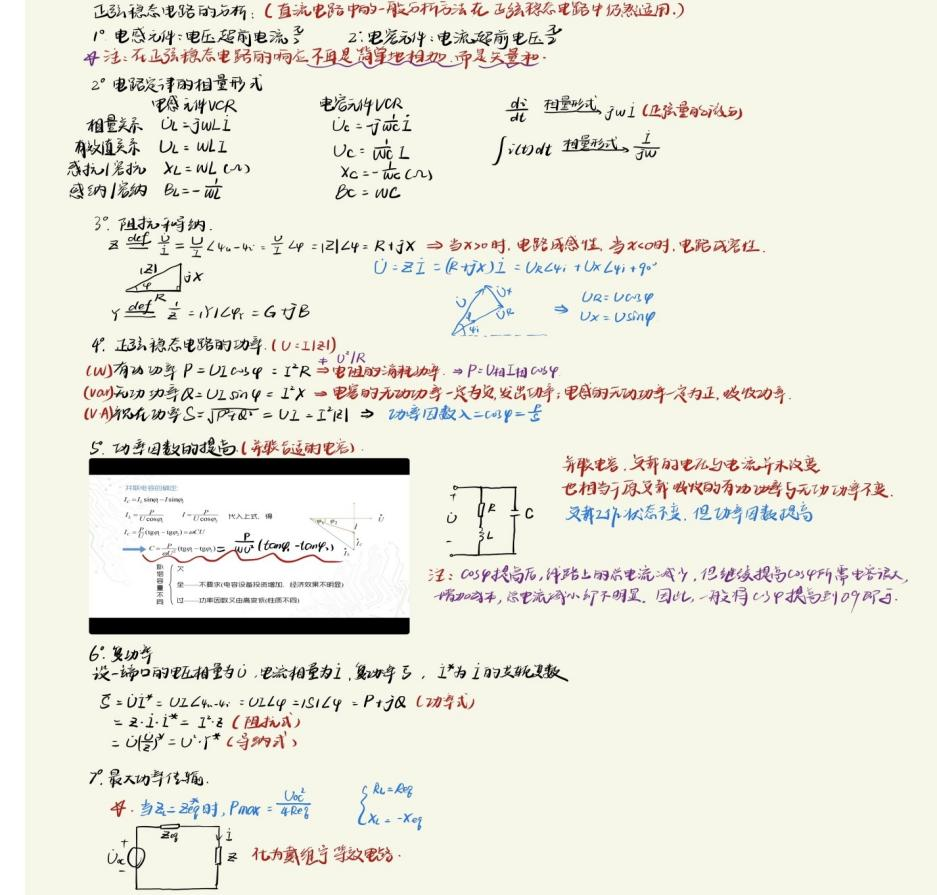 正弦稳态电路的分析:(直流电路中的一般分析方法在正弦稳态电路中仍然适用.)
1° 电感元件:电压超前电流 π/2 2.电容元件:电流超前电压 π/2
注:在正弦稳态电路的响应不再是简单地相加,而是矢量和.
2° 电路定律的相量形式
电感元件VCR 电容元件VCR
相量关系 U̇L=jωLİ U̇c=-j 1/ωc İ di/dt 相量形式→ jωİ (正弦量的微分)
有效值关系 UL=ωLI Uc=1/ωc I ∫i(t)dt 相量形式→ İ/jω
感抗/容抗 XL=ωL(Ω) Xc=-1/ωc(Ω)
感纳/容纳 BL=-1/ωL Bc=ωC
3°.阻抗和导纳.
Z def= U̇/İ = U/I∠φu-φi = U/I∠φ =|Z|∠φ=R+jX ⇒当X>0时,电路成感性,当X<0时,电路成容性.
U̇=Zİ=(R+jX)İ=UR∠φi+UX∠φi+90°
|Z| jX φ R
U̇ U̇X U̇R φ φi ⇒ UR=Ucosφ
UX=Usinφ
Y def= 1/Z =|Y|∠φY=G+jB
4°.正弦稳态电路的功率.(U=I|Z|)
≠U²/R
(W)有功功率 P=UIcosφ=I²R ⇒电阻的消耗功率.⇒P=U相I相cosφ
(var)无功功率Q=UIsinφ=I²X ⇒电容的无功功率一定为负,发出功率;电感的无功功率一定为正,吸收功率.
(VA)视在功率S=√P²+Q²=UI=I²|Z| ⇒ 功率因数λ=cosφ=P/S
5°.功率因数的提高.(并联合适的电容)
并联电容的确定:
Ic=IL sinφ1-I sinφ2
IL=P/Ucosφ1 I=P/Ucosφ2 代入上式,得
Ic=P/U(tgφ1-tgφ2)=ωCU
C=P/ωU²(tgφ1-tgφ2)=P/ωU²(tanφ1-tanφ2)
补偿容量不同
欠
全——不要求(电容设备投资增加,经济效果不明显)
过——功率因数又由高变低(性质不同)
+ U̇ - R L C
并联电容,支都的电压与电流并未改变
也相当于原支都吸收的有功功率与无功功率不变.
支都工作状态不变,但功率因数提高
注:cosφ提高后,线路上的总电流减少,但继续提高cosφ所需电容很大,
增加成本,总电流减小却不明显.因此,一般将cosφ提高到0.9即可.
6°.复功率
设一端口的电压相量为U̇,电流相量为İ,复功率S̄,İ*为İ的共轭复数
S̄=U̇İ*=UI∠φu-φi=UI∠φ=|S|∠φ=P+jQ(功率式)
=Z·İ·İ*=I²·Z(阻抗式)
=U̇(U̇/Z)*=U²·Y*(导纳式)
7°.最大功率传输.
当ZL=Zeq*时,Pmax=Uoc²/4Req { RL=Req
XL=-Xeq
Zeq + U̇oc - İ Z 化为戴维宁等效电路.